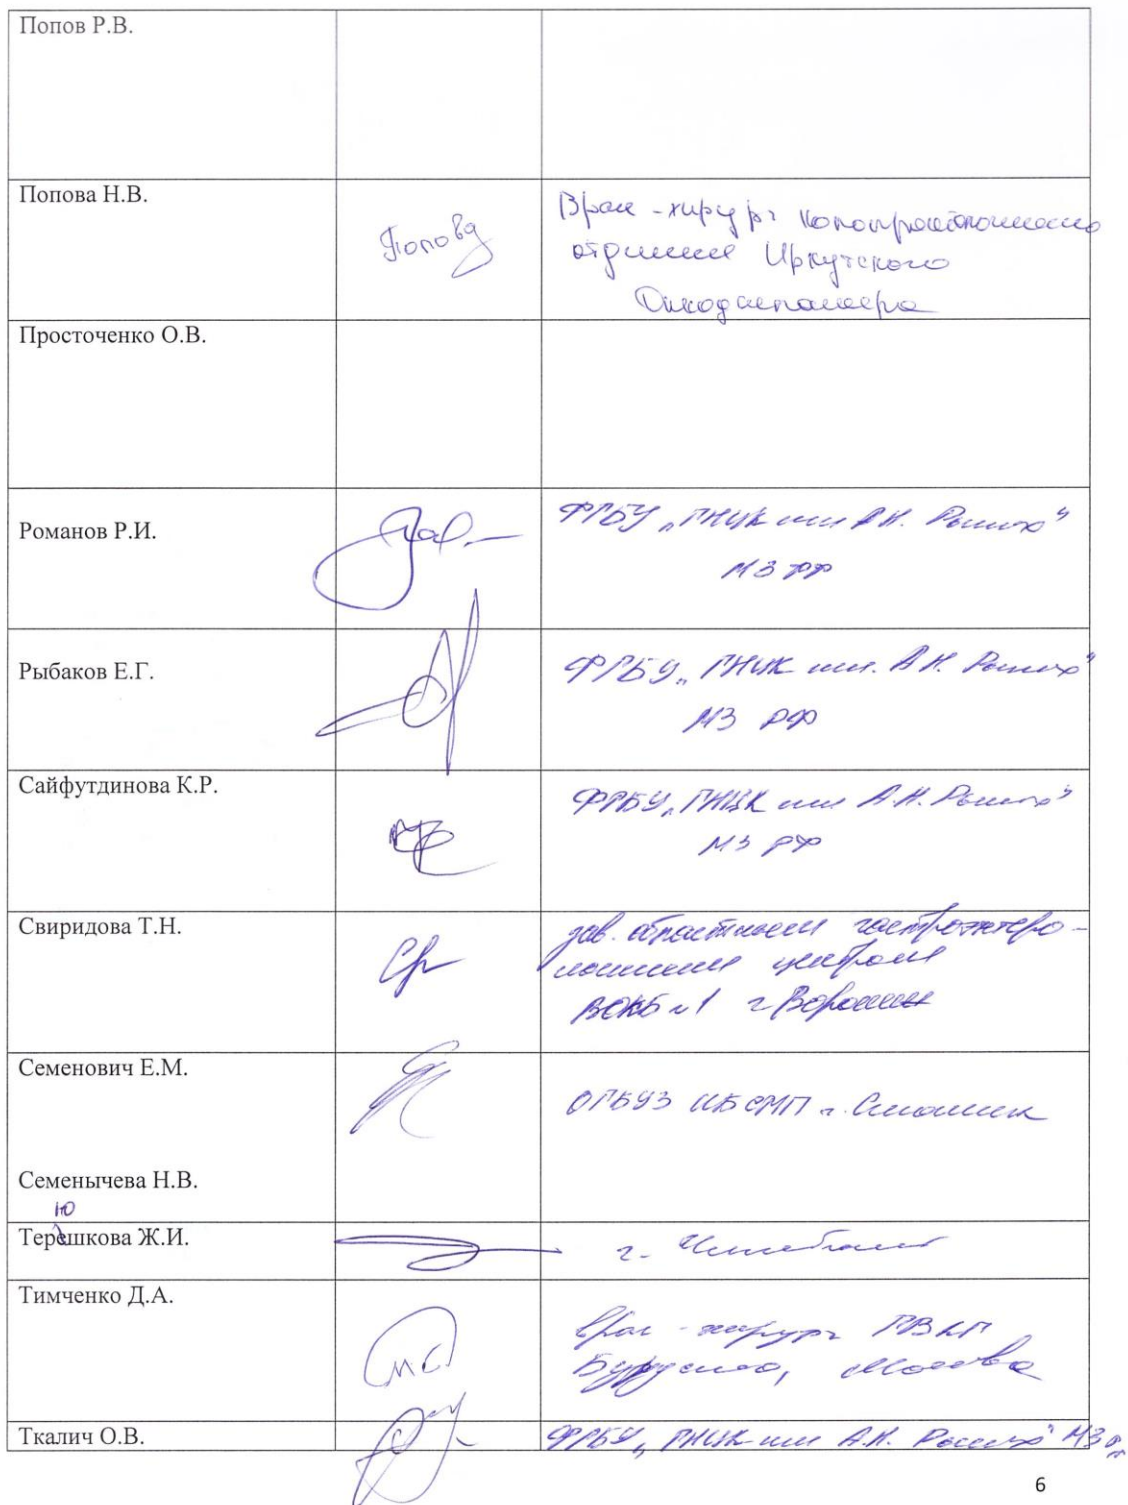 Попов Р.В.
Попова Н.В.
Попова
Врач-хирург колопроктологического
отделения Иркутского
Онкодиспансера
Просточенко О.В.
Романов Р.И.
ФГБУ „ГНЦК им А.Н. Рыжих"
МЗ РФ
Рыбаков Е.Г.
ФГБУ „ГНЦК им. А.Н. Рыжих"
МЗ РФ
Сайфутдинова К.Р.
ФГБУ „ГНЦК им А.Н. Рыжих"
МЗ РФ
Свиридова Т.Н.
зав. областным гастроэнтеро-
логическим центром
ВОКБ №1 г Воронеж
Семенович Е.М.
ОГБУЗ КБСМП г. Смоленск
Семенычева Н.В.
ю
Терешкова Ж.И.
г. Челябинск
Тимченко Д.А.
Врач-хирург ГВКГ
Бурденко, Москва
Ткалич О.В.
ФГБУ „ГНЦК им А.Н. Рыжих" МЗ РФ
6